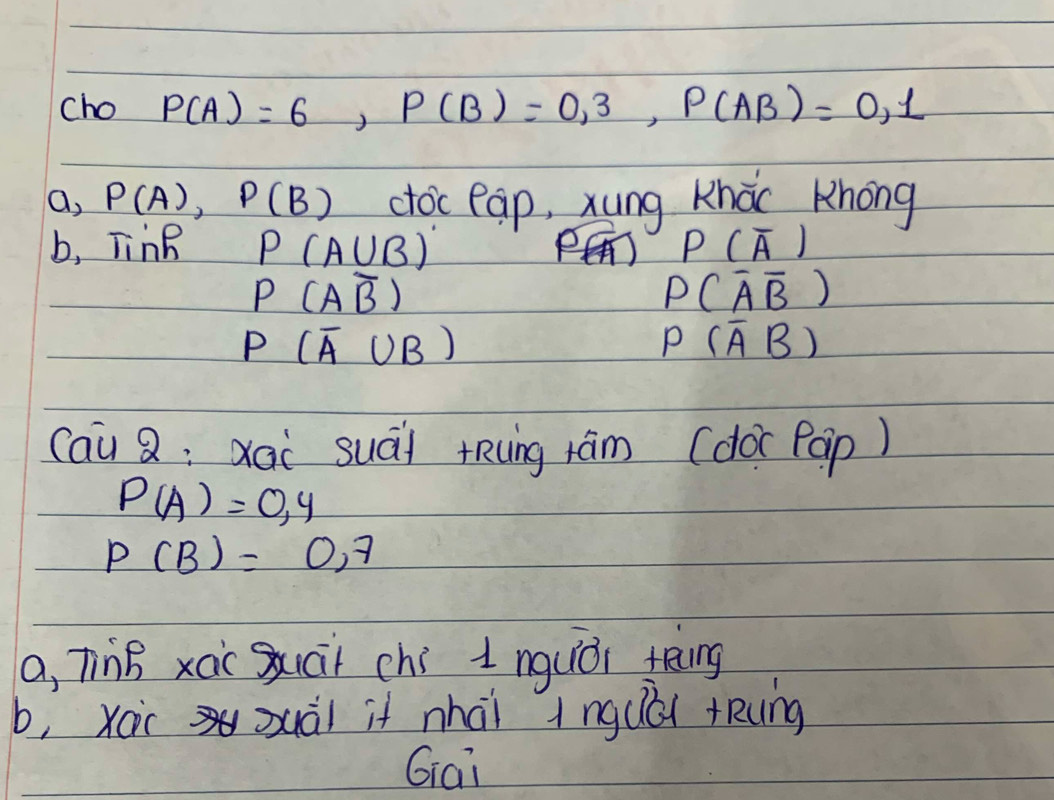 Cho P(A) = 6 , P(B) = 0,3 , P(AB) = 0,1
a, P(A), P(B) độc lập, xung khắc không
b, Tính P(A∪B) P(Ā)
P(AB̄) P(ĀB̄)
P(Ā∪B) P(ĀB)
Câu 2: xác suất trúng tâm (độc lập)
P(A) = 0,4
P(B) = 0,7
a, Tính xác suất chỉ 1 người trúng
b, xác suất ít nhất 1 người trúng
Giải